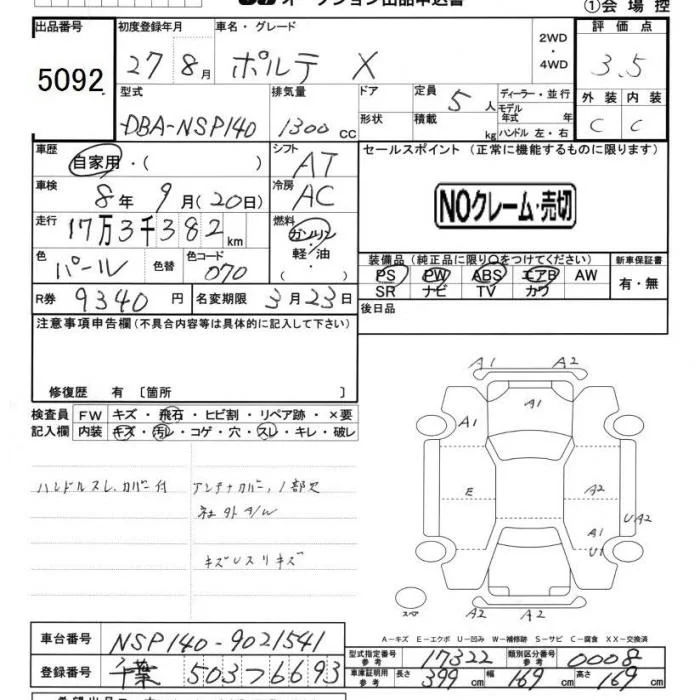 オークション出品申込書 ①会場控
出品番号 初度登録年月 車名・グレード 2WD・4WD 評価点
5092 27 8月 ポルテ X 3.5
型式 排気量 ドア 定員 5人 ディーラー・並行 外装 内装
DBA-NSP140 1300cc 形状 積載 kg モデル年式 年 ハンドル 左・右 C C
車歴 自家用・( ) シフト AT セールスポイント (正常に機能するものに限ります)
車検 8年9月(20日) 冷房 AC NOクレーム・売切
走行 17万3千382km 燃料 ガソリン・軽・油・( )
色 パール 色替 色コード 070
装備品(純正品に限り○をつけてください) 新車保証書
PS PW ABS エアB AW 有・無
SR ナビ TV カワ
R券 9340円 名変期限 3月23日 後日品
注意事項申告欄(不具合内容等は具体的に記入して下さい)
修復歴 有〔箇所 〕
検査員 FW キズ・飛石・ヒビ割・リペア跡・×要
記入欄 内装 キズ・汚レ・コゲ・穴・スレ・キレ・破レ
ハンドルスレ、カバー付 アンテナカバー、1部欠
社外A/W
キズUスリキズ
A1 A2
A1
A1
E A2
A1 UA2
U1
スペ A1 A2
A-キズ E-エクボ U-凹み W-補修跡 S-サビ C-腐食 XX-交換済
車台番号 NSP140-9021541
登録番号 千葉 503 フ 6693
型式指定番号 参考 17322 類別区分番号 参考 0008
車庫証明用 参考 長さ 399cm 幅 169cm 高さ 169cm